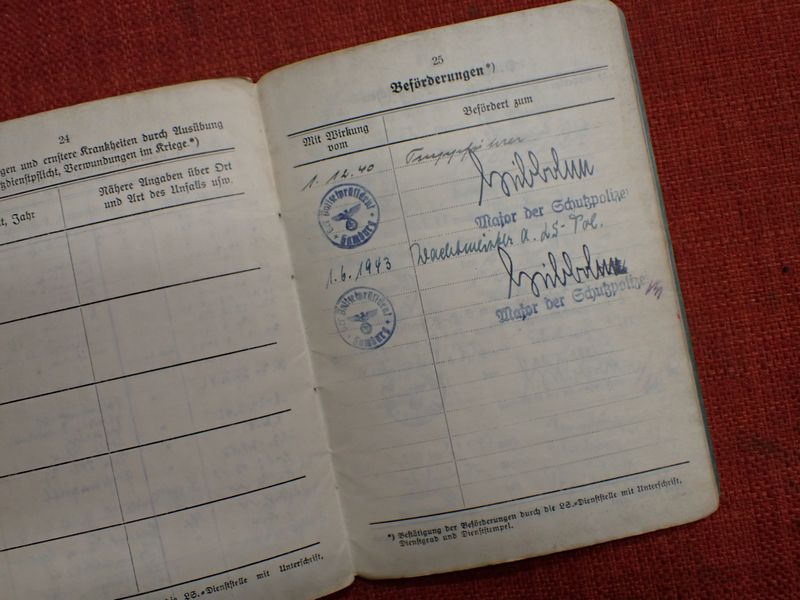 24
gen und ernstere Krankheiten durch Ausübung
zdienstpflicht, Verwundungen im Kriege.*)
t, Jahr
Nähere Angaben über Ort
und Art des Unfalls usw.
die LS.=Dienststelle mit Unterschrift,
25
Beförderungen*)
Mit Wirkung
vom
Befördert zum
1. 12. 40
Truppführer
Der Polizeipräsident
Hamburg
Major der Schutzpolizei
1. 6. 1943
Wachtmeister d. LS-Pol.
Der Polizeipräsident
Hamburg
Major der Schutzpolizei
*) Bestätigung der Beförderungen durch die LS.=Dienststelle mit Unterschrift,
Dienstgrad und Dienststempel.